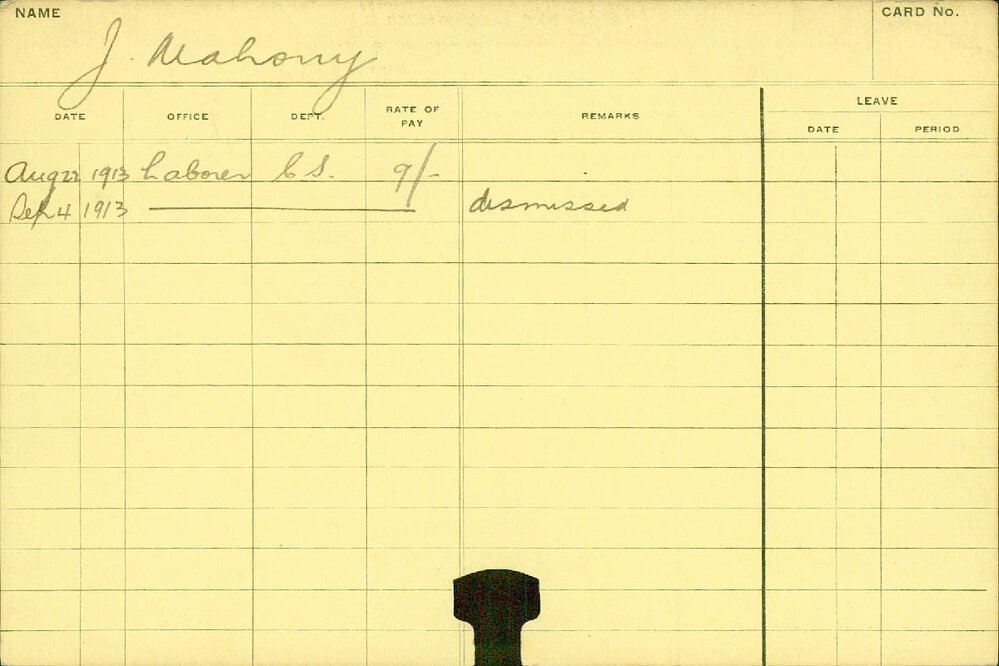 NAME
CARD No.
J. Mahony
DATE OFFICE DEPT. RATE OF PAY REMARKS LEAVE
DATE PERIOD
Aug 22 1913 Laborer C S. 9/-
Sep 4 1913 dismissed